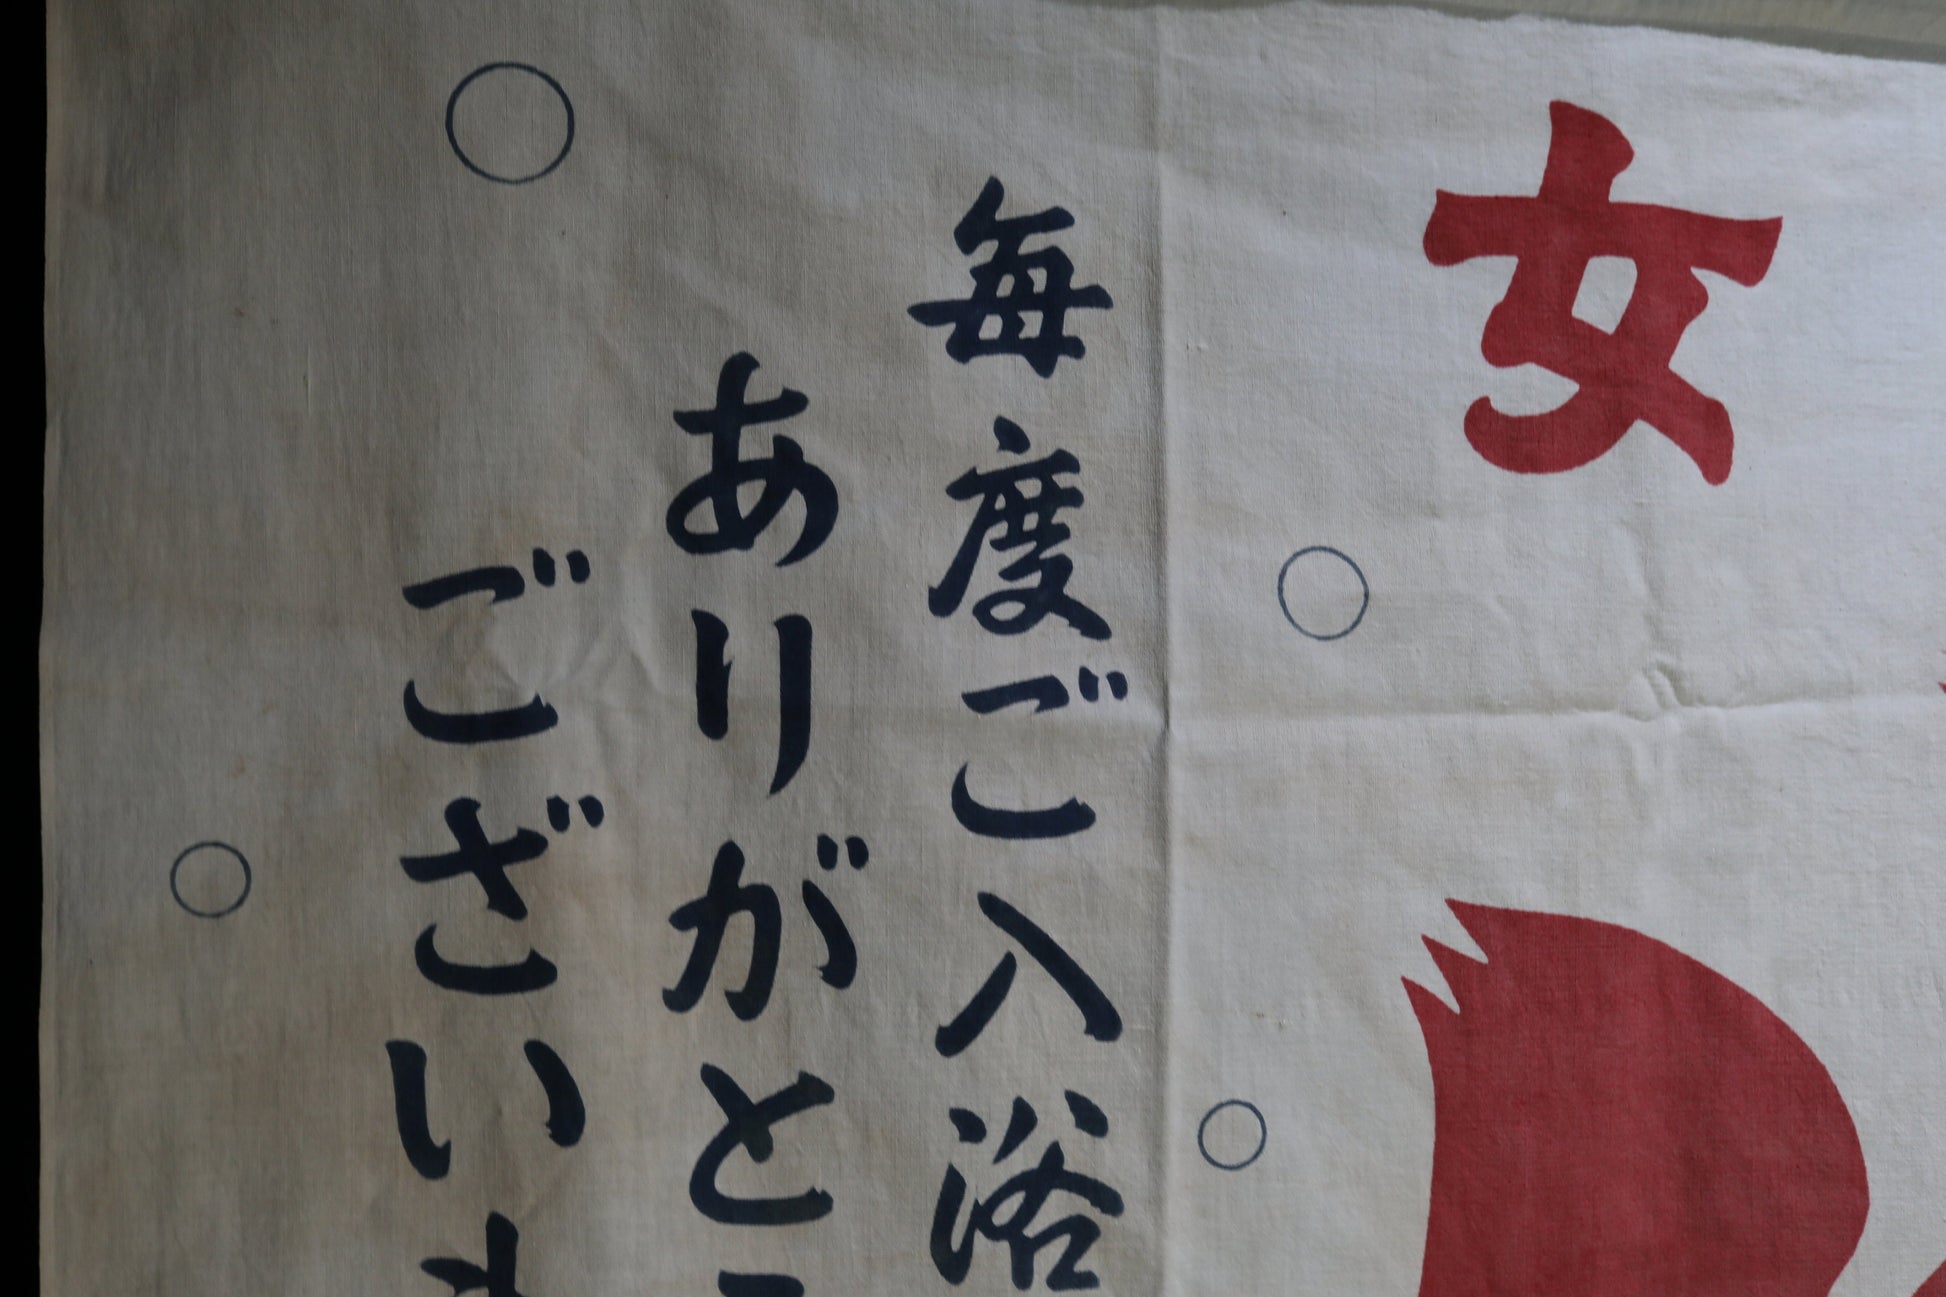 女
毎度ご入浴
ありがと
ござい